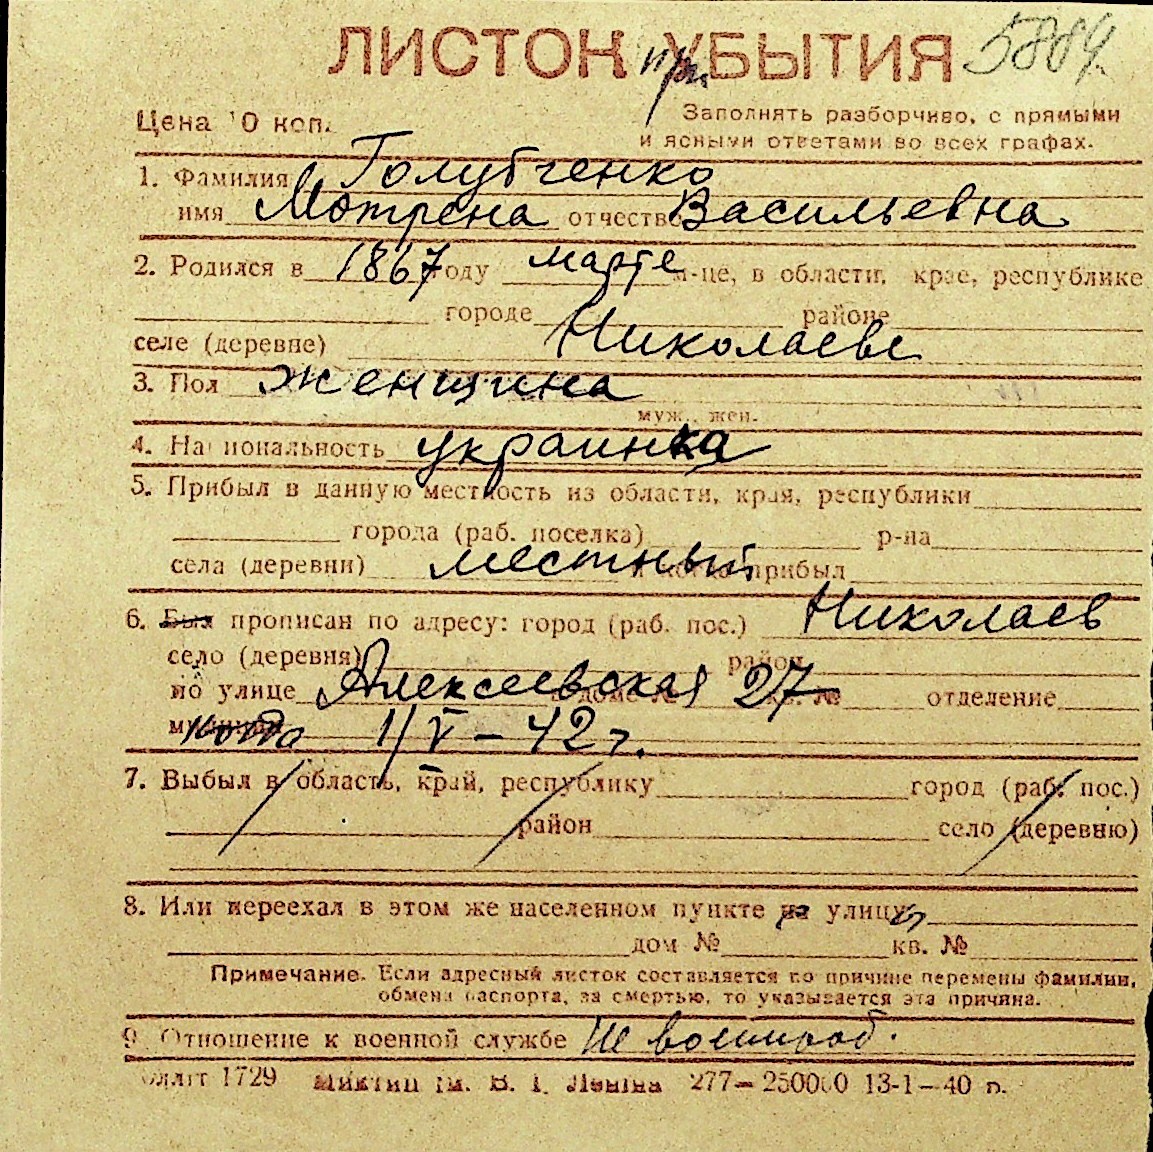 ЛИСТОК при УБЫТИЯ 5884
Цена 10 коп.
Заполнять разборчиво, с прямыми
и ясными ответами во всех графах.
1. Фамилия Голубченко
имя Мотрена отчество Васильевна
2. Родился в 1867 году марте м-це, в области, крае, республике
городе районе
селе (деревне) Николаеве
3. Пол женщина
муж., жен.
4. Национальность украинка
5. Прибыл в данную местность из области, края, республики
города (раб. поселка) р-на
села (деревни) местный и когда прибыл
6. Был прописан по адресу: город (раб. пос.) Николаев
село (деревня) район
по улице Алексеевская дом № 27 кв. № отделение
милиции когда 1/V – 42 г.
7. Выбыл в область, край, республику город (раб. пос.)
район село (деревню)
8. Или переехал в этом же населенном пункте на улицу
дом № кв. №
Примечание. Если адресный листок составляется по причине перемены фамилии,
обмена паспорта, за смертью, то указывается эта причина.
9. Отношение к военной службе Не военнооб.
1729 им. В. І. Леніна 277—250000 13-1—40 р.